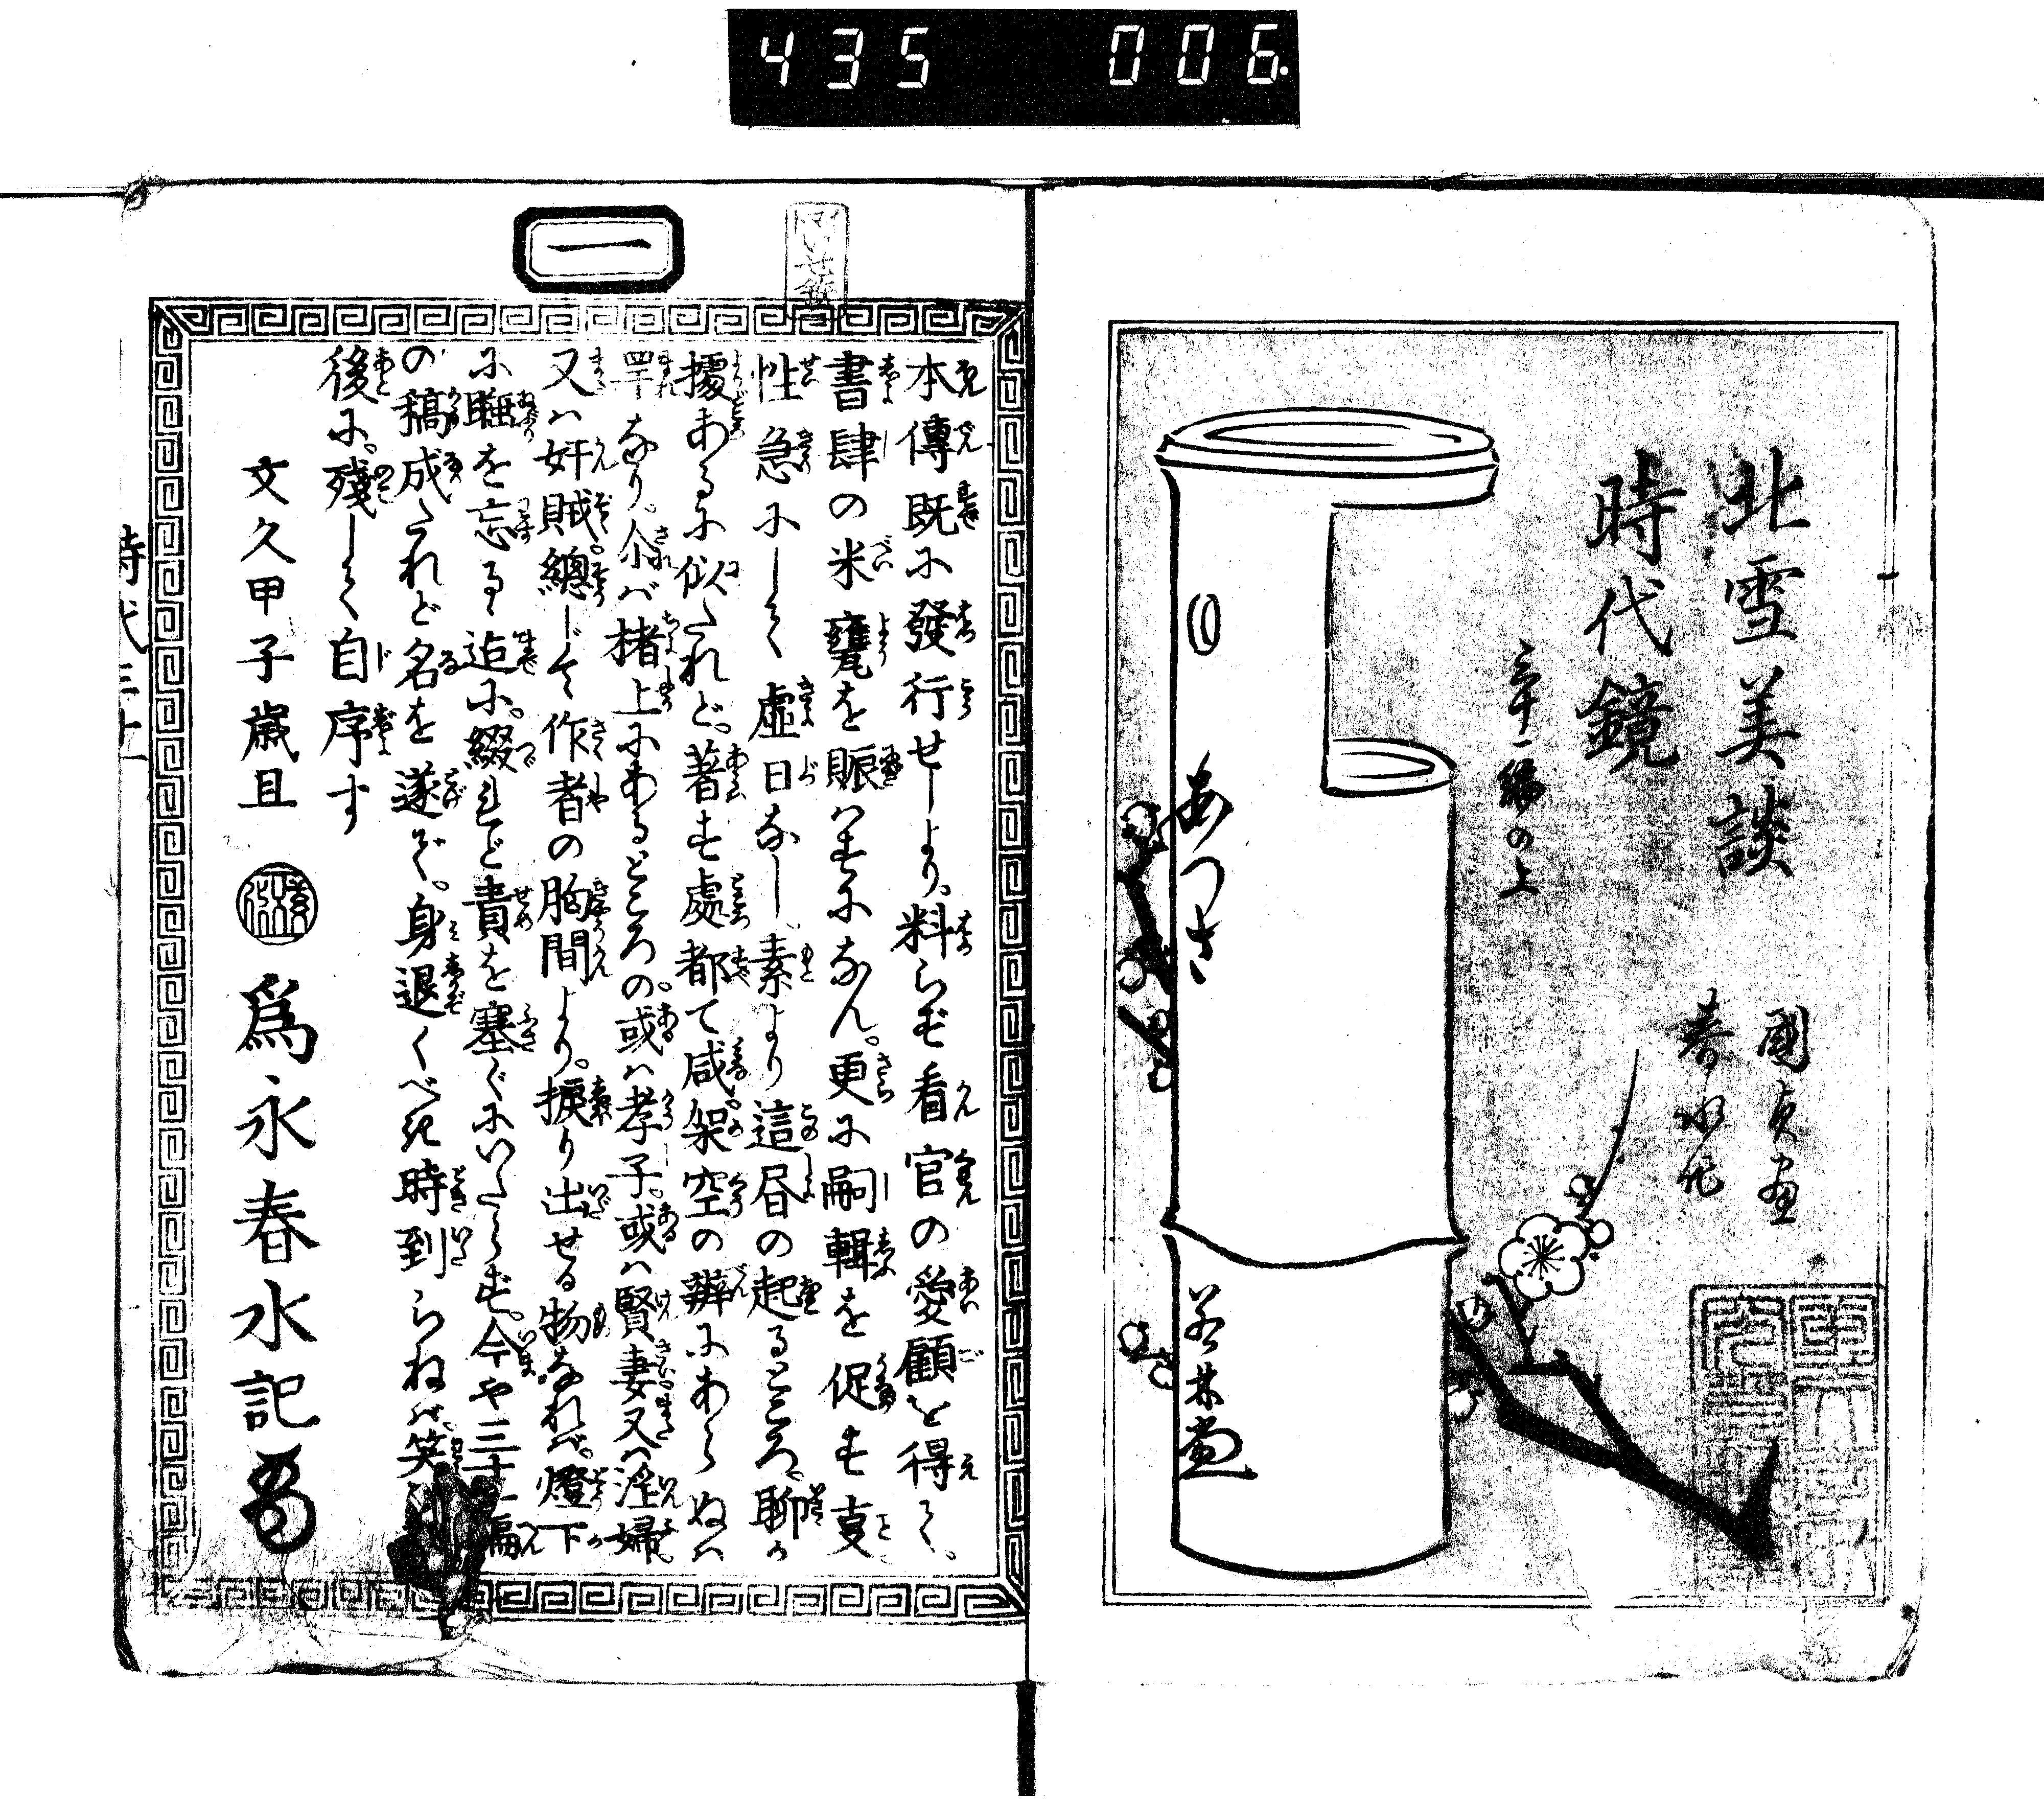 435 006
北雪美談
時代鏡
三十一編の上
國貞画
春水作
若林堂
一
本傳既に發行せしより。料らず看官の愛顧を得て。
書肆の米甕を賑はすになん。更に嗣輯を促す事
性急にして虚日なし。素より這書の起るところ。聊か
據あるに似たれど。著す處都て咸。架空の辨にあらぬは
罕なり。介ば楮上にあるところの。或は孝子。或は賢妻又は淫婦
又は奸賊。總じて作者の胸間より。捩り出せる物なれば。燈下
に睡を忘るゝ迄に。綴れど責を塞ぐにいたらず。今や三十一編
の稿成たれど名を遂で。身退くべき時到らねば。笑
後に。殘して自序す
文久甲子歳旦
爲永春水記